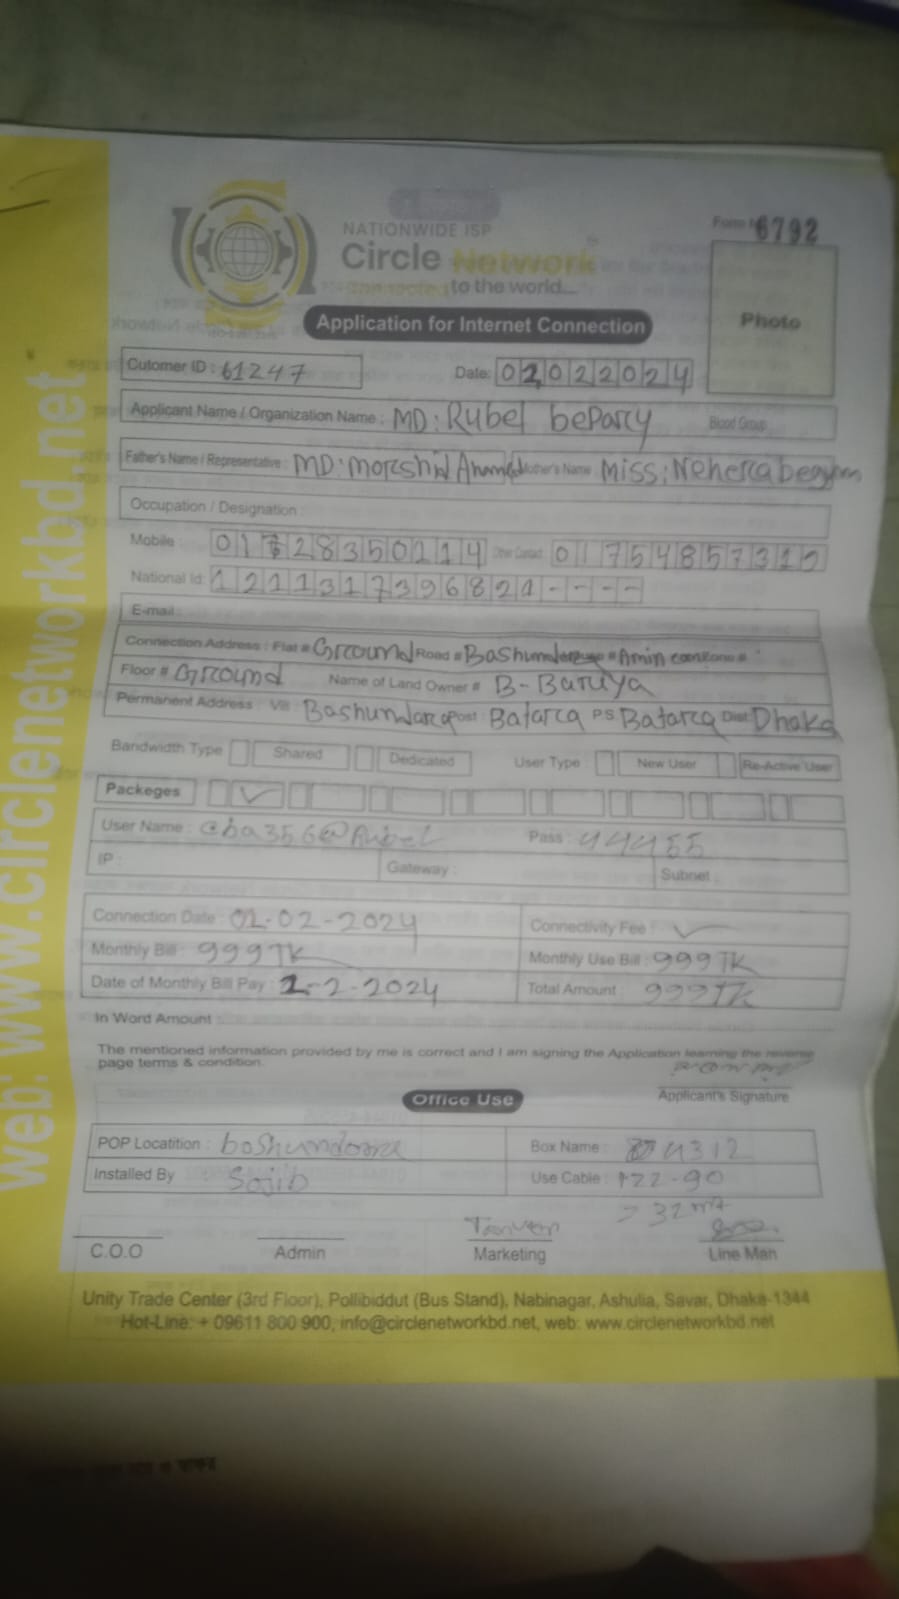 Form No 6792
NATIONWIDE ISP
Circle Network
connected to the world...
Application for Internet Connection
Photo
Cutomer ID : 61247
Date: 02022024
Applicant Name / Organization Name : MD: Rubel beparcy Blood Group
Father's Name / Representative : MD: morcshid Ahmed Mother's Name Miss: Neherca begum
Occupation / Designation :
Mobile : 01728350214 Other Contact 01754857312
National Id: 1211317396821----
E-mail :
Connection Address : Flat # Grcound Road # Bashundarca # Amin Zone #
Floor # Grcound Name of Land Owner # B-Baruya
Permanent Address : Vill : Bashundarca Post : Batarca P.S Batarca Dist: Dhaka
Bandwidth Type Shared Dedicated User Type : New User Re-Active User
Packeges
User Name : Pass : 44455
IP : Gateway : Subnet :
Connection Date : 02-02-2024 Connectivity Fee :
Monthly Bill : 999TK Monthly Use Bill : 999TK
Date of Monthly Bill Pay : 2-2-2024 Total Amount : 999TK
In Word Amount
The mentioned information provided by me is correct and I am signing the Application learning the reverse
page terms & condition.
Applicant's Signature
Office Use
POP Locatition : boshundoara Box Name : 4312
Installed By : Sojib Use Cable : 122-90
Tanver
C.O.O Admin Marketing Line Man
Unity Trade Center (3rd Floor), Pollibiddut (Bus Stand), Nabinagar, Ashulia, Savar, Dhaka-1344
Hot-Line: + 09611 800 900, info@circlenetworkbd.net, web: www.circlenetworkbd.net
web: www.circlenetworkbd.net